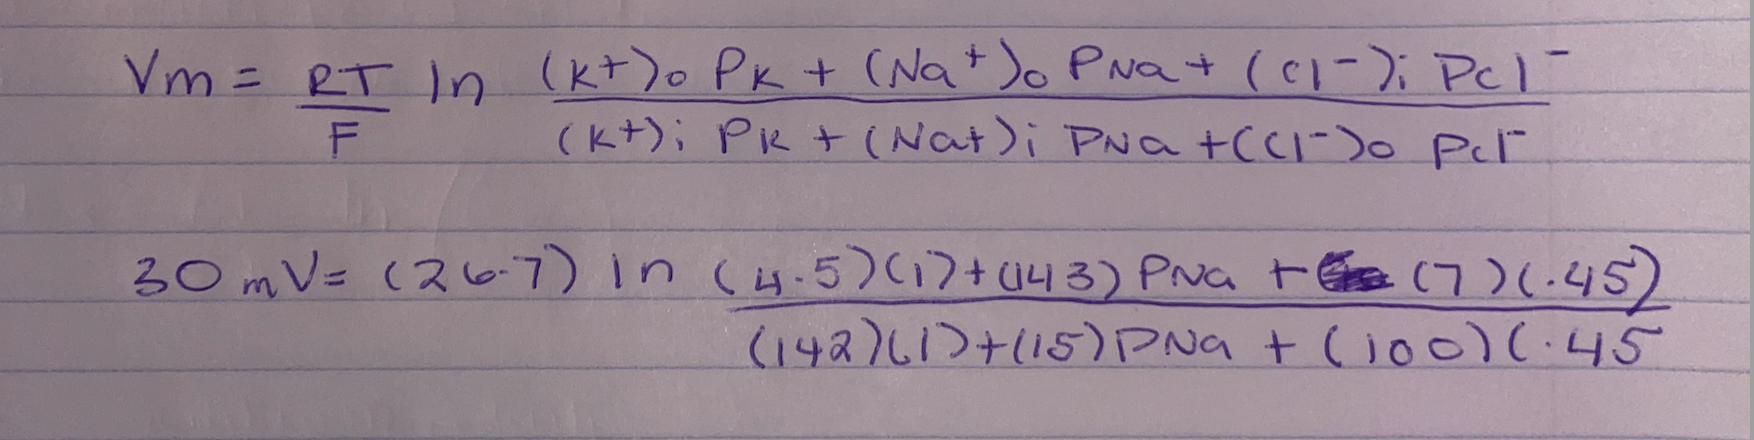 Vm = RT/F ln (K+)o PK + (Na+)o PNa + (Cl-)i PCl-
(K+)i PK + (Na+)i PNa + (Cl-)o PCl-
30 mV = (26.7) ln (4.5)(1)+(143) PNa + (7)(.45)
(142)(1)+(15)PNa + (100)(.45